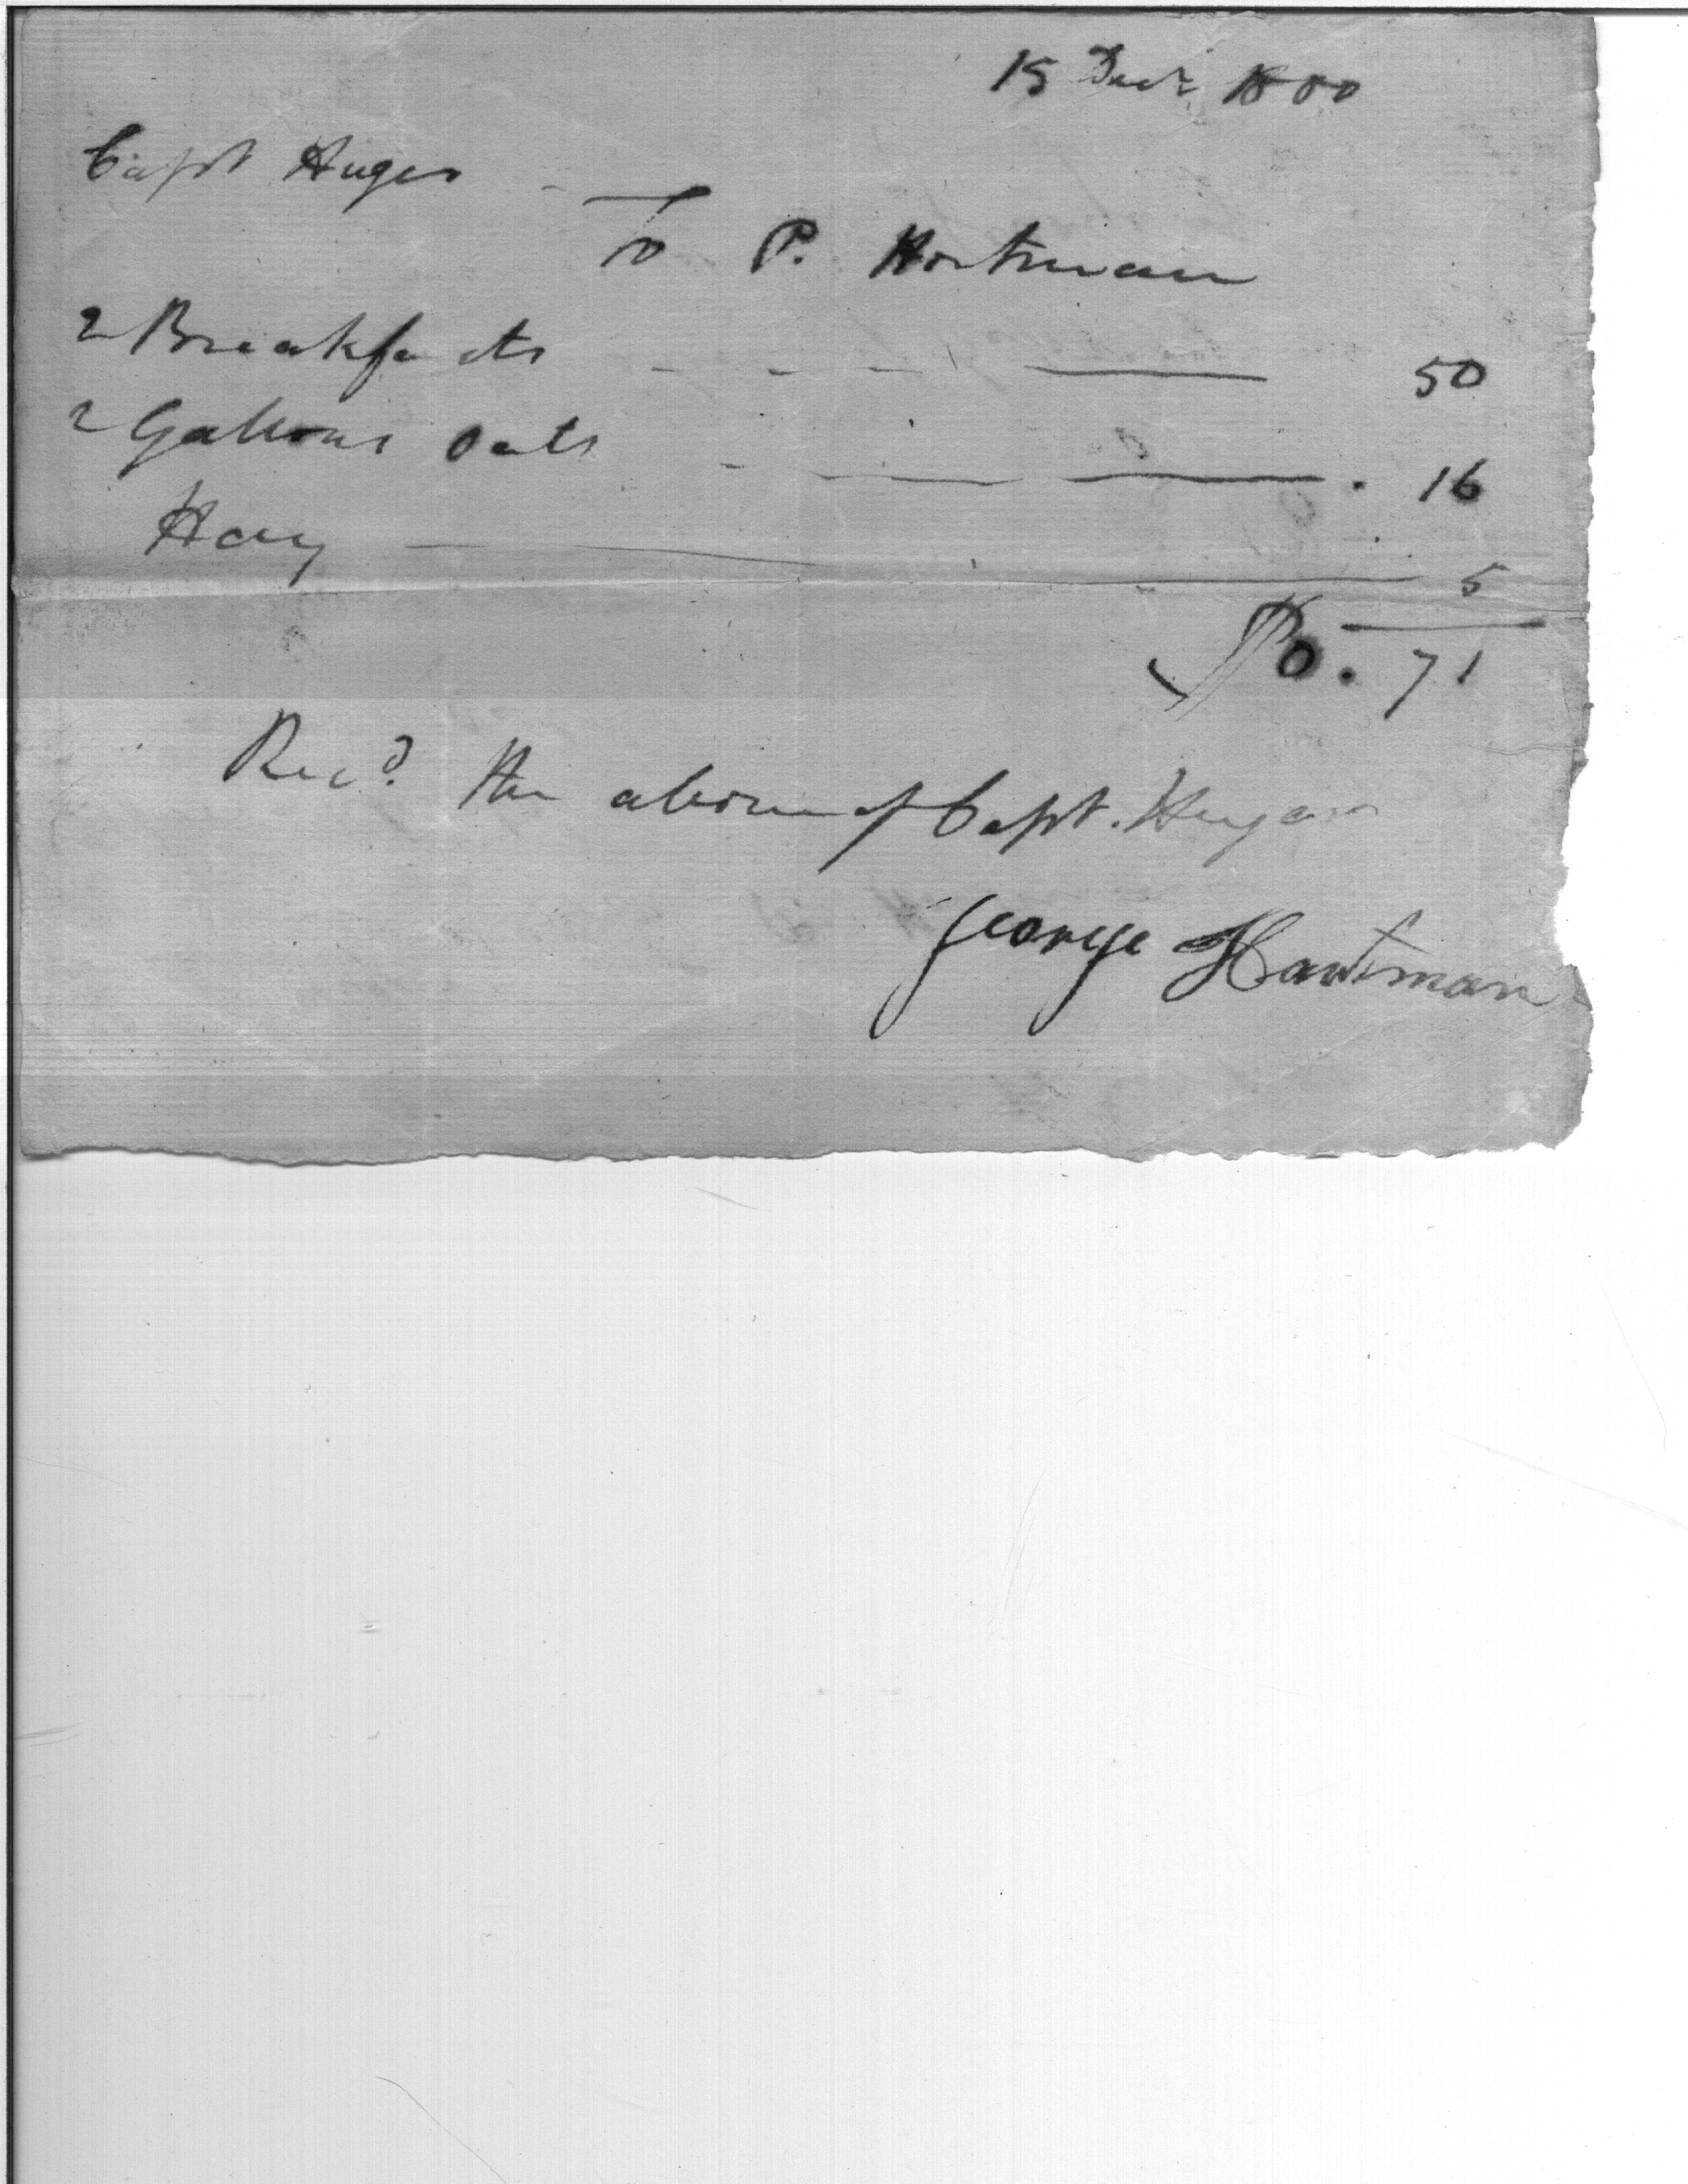 15 Decr. 1800
Capt Huger
To P. Hartman
2 Breakfasts 50
2 Gallons Oats 16
Hay 5
$0.71
Recd. the above of Capt. Huger
George Hartman